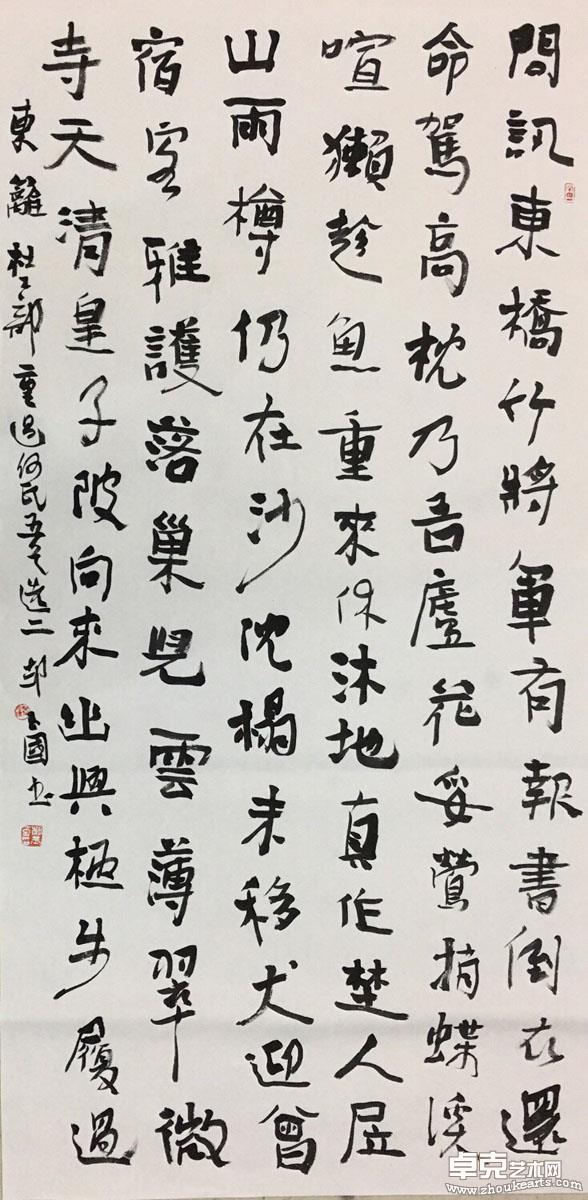 問訊東橋竹將軍有報書倒衣還
命駕高枕乃吾廬花妥鶯捎蝶溪
喧獺趁魚重來休沐地真作埜人居
山雨樽仍在沙沈榻未移犬迎曾
宿客雅護落巢兒雲薄翠微
寺天清皇子陂向來幽興極步履過
東籬 杜工部重過何氏五首選二 國书
卓克艺术网
www.zhoukearts.com